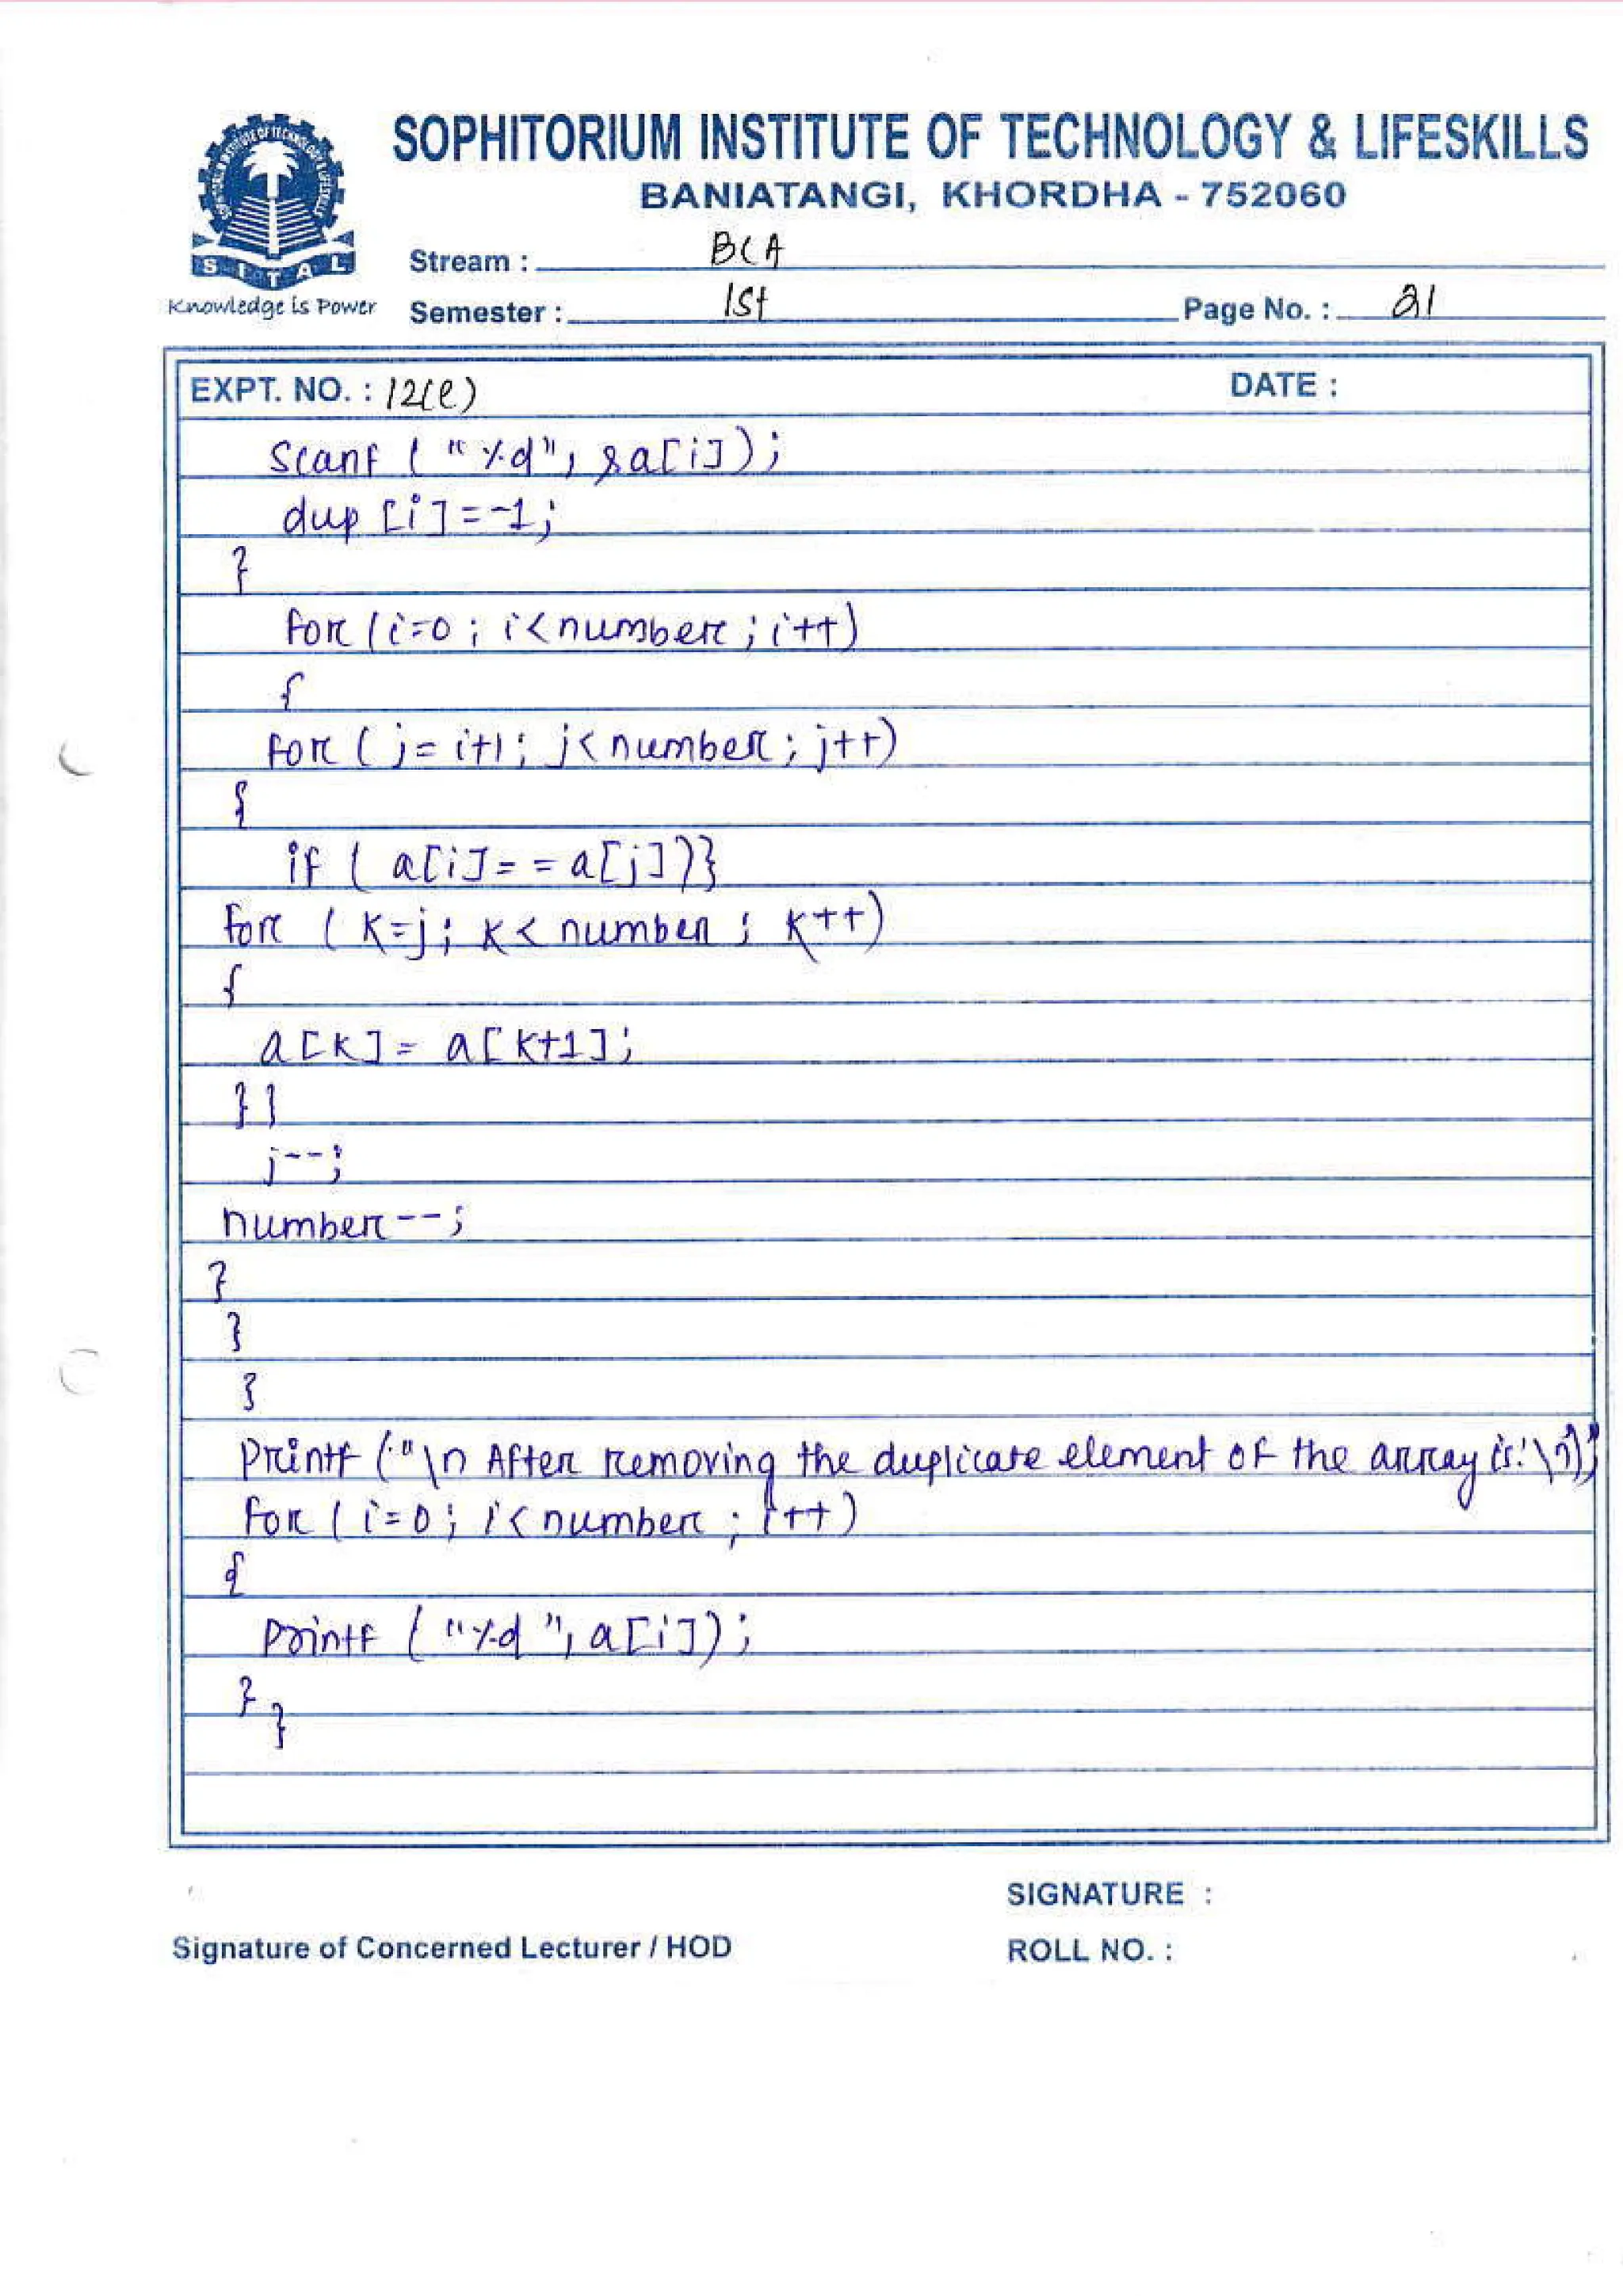 SOPHITORIUM INSTITUTE OF TECHNOLOGY & LIFESKILLS
BANIATANGI, KHORDHA - 752060
SITAL
Knowledge is Power
Stream : BCA
Semester : 1st
Page No. : 21
EXPT. NO. : 12(e)
DATE :
Scanf ( "%d", &a[i]);
dup [i]=-1;
}
for (i=0 ; i<number ; i++)
{
for ( j= i+1 ; j<number ; j++)
{
if ( a[i]= = a[j])}
for ( k=j ; k< number ; k++)
{
a[k]= a[k+1];
}}
j--;
number--;
}
}
}
Printf ("\n After removing the duplicate element of the array is:\n);
for ( i=0 ; i< number ; i++)
{
Printf ( "%d ", a[i]);
}
}
SIGNATURE :
Signature of Concerned Lecturer / HOD
ROLL NO. :